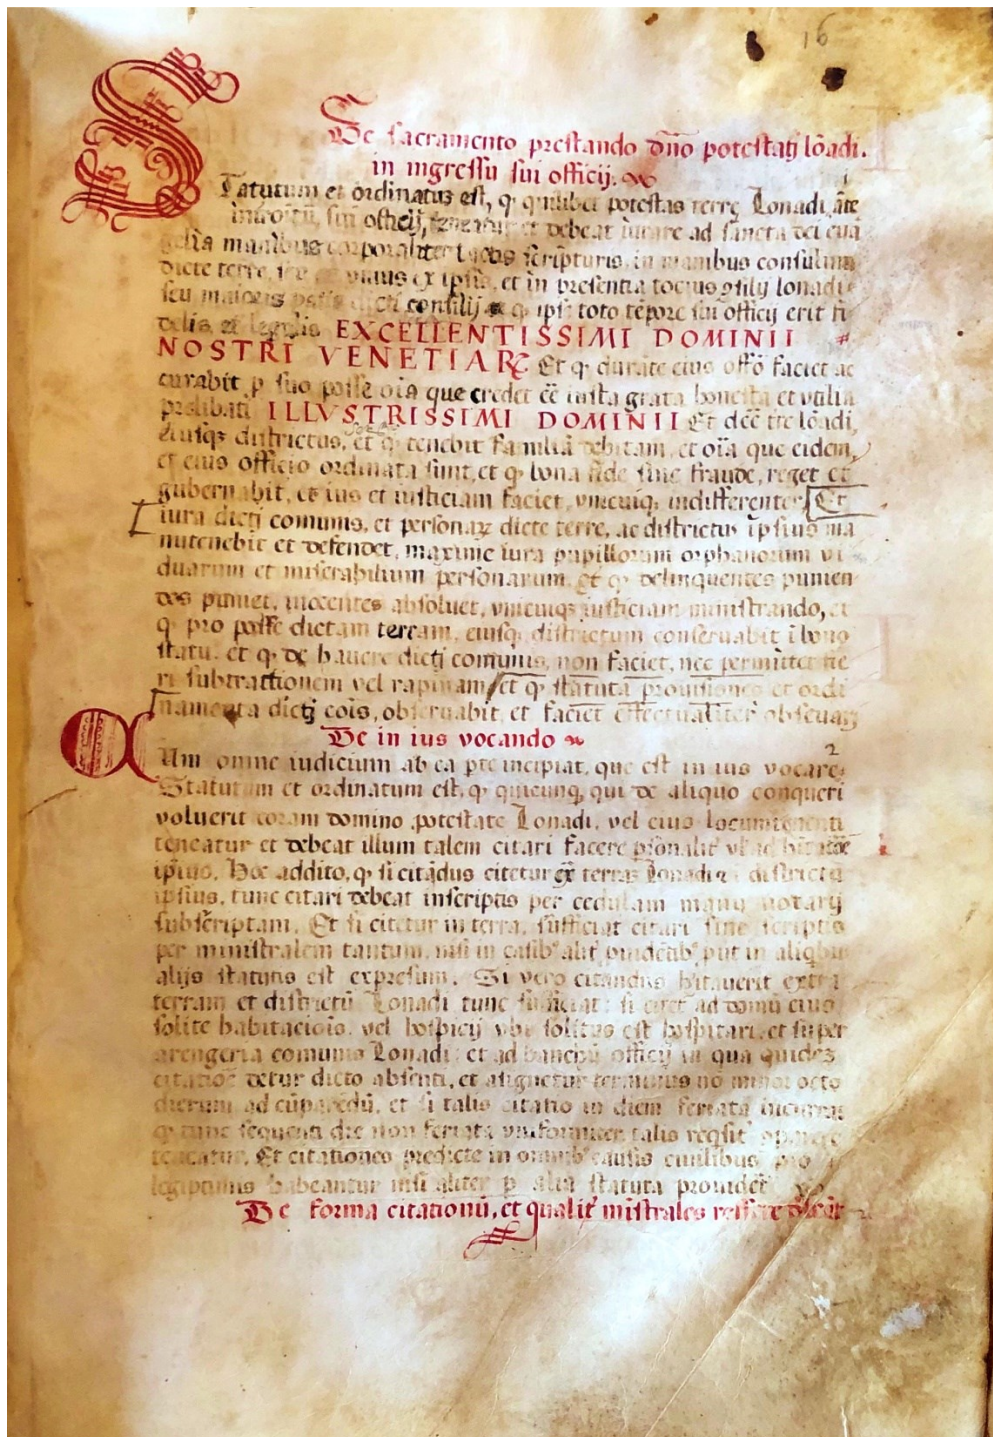 16
De sacramento prestando dño potestatj lōadi.
in ingressu sui officij.
1
Statutum et ordinatuȝ est, q quilibet potestas terrę Lonadi, āte
introitū, sui officij, teneatur et debeat iurare ad sancta dei euā
gelia manibus corporaliter tactis scripturis, in manibus consulum
dicte terre, seu unius ex ipsis, et in presentia tocius ɔsilij lonadi
seu maioris partis dicti consilij q ipse toto tēpore sui officij erit fi
delis et legalis EXCELLENTISSIMI DOMINII
NOSTRI VENETIARꝜ Et q durāte eius offō faciet ac
curabit p suo posse oīa que credet eē iusta grata honesta et utilia
prelibati ILLVSTRISSIMI DOMINII Et decē tre lōadi,
eiusqȝ districtus, et q tenebit familiā debitam, et oīa que eidem,
et eius officio ordinata sunt, et q bona fide sine fraude, reget et
gubernabit, et ius et iusticiam faciet, unicuiqȝ indifferenter, Et
iura dictj comunis, et personaꝝ dicte terre, ac districtus īpsius ma
nutenebit et defendet, maxime iura pupillorum orphanorum vi
duarum et miserabilium personarum, et q delinquentes punien
dos puniet, inocentes absoluet, unicuiqȝ iusticiam ministrando, et
q pro posse dictam terram, eiusqȝ districtum conseruabit ī bono
statu, et q de hauere dictj comunis, non faciet, nec permittet fie
ri subtractionem vel rapinam, et q statuta prouisiones et ordi
namenta dictj cōis, obseruabit, et faciet effectualiter obseruarj
De in ius vocando
2
Cum omne iudicium ab ea pte incipiat, que est in ius vocare,
Statutum et ordinatum est, q quicunqȝ, qui de aliquo conqueri
voluerit coram domino potestate Lonadi, vel eius locumtenenti
teneatur et debeat illum talem citari facere psonalit vl ad hitatōe
ipsius. Hoc addito, q si citādus citetur ex terra Lonadi districtu
ipsius, tunc citari debeat inscriptis per cedulam manu notarij
subscriptam, Et si citetur in terra, sufficiat citari sine scriptis
per ministralem tantum, nisi in casibꝰ alit puidētibꝰ put in aliqbus
alijs statutis est expresum. Si vero citandus hitauerit extra
terram et districtū Lonadi tunc sufficiat si citet ad domū eius
solite habitaciois, vel hospicij vbi solitus est hospitari, et super
arengeria comunis Lonadi et ad banchū officij in qua quideȝ
citatioē detur dicto absenti, et asignetur terminus nō minor octo
dierum ad cōparēdū, et si talis citatio in diem feriatā incurrat
q tunc sequenti die non feriata uniformiter talis reqsit
teneatur, Et citationes predicte in omnibꝰ causis ciuilibus pro
legiptimis habeantur nisi aliter p alia statuta prouidet
De forma citationū, et qualit mistrales